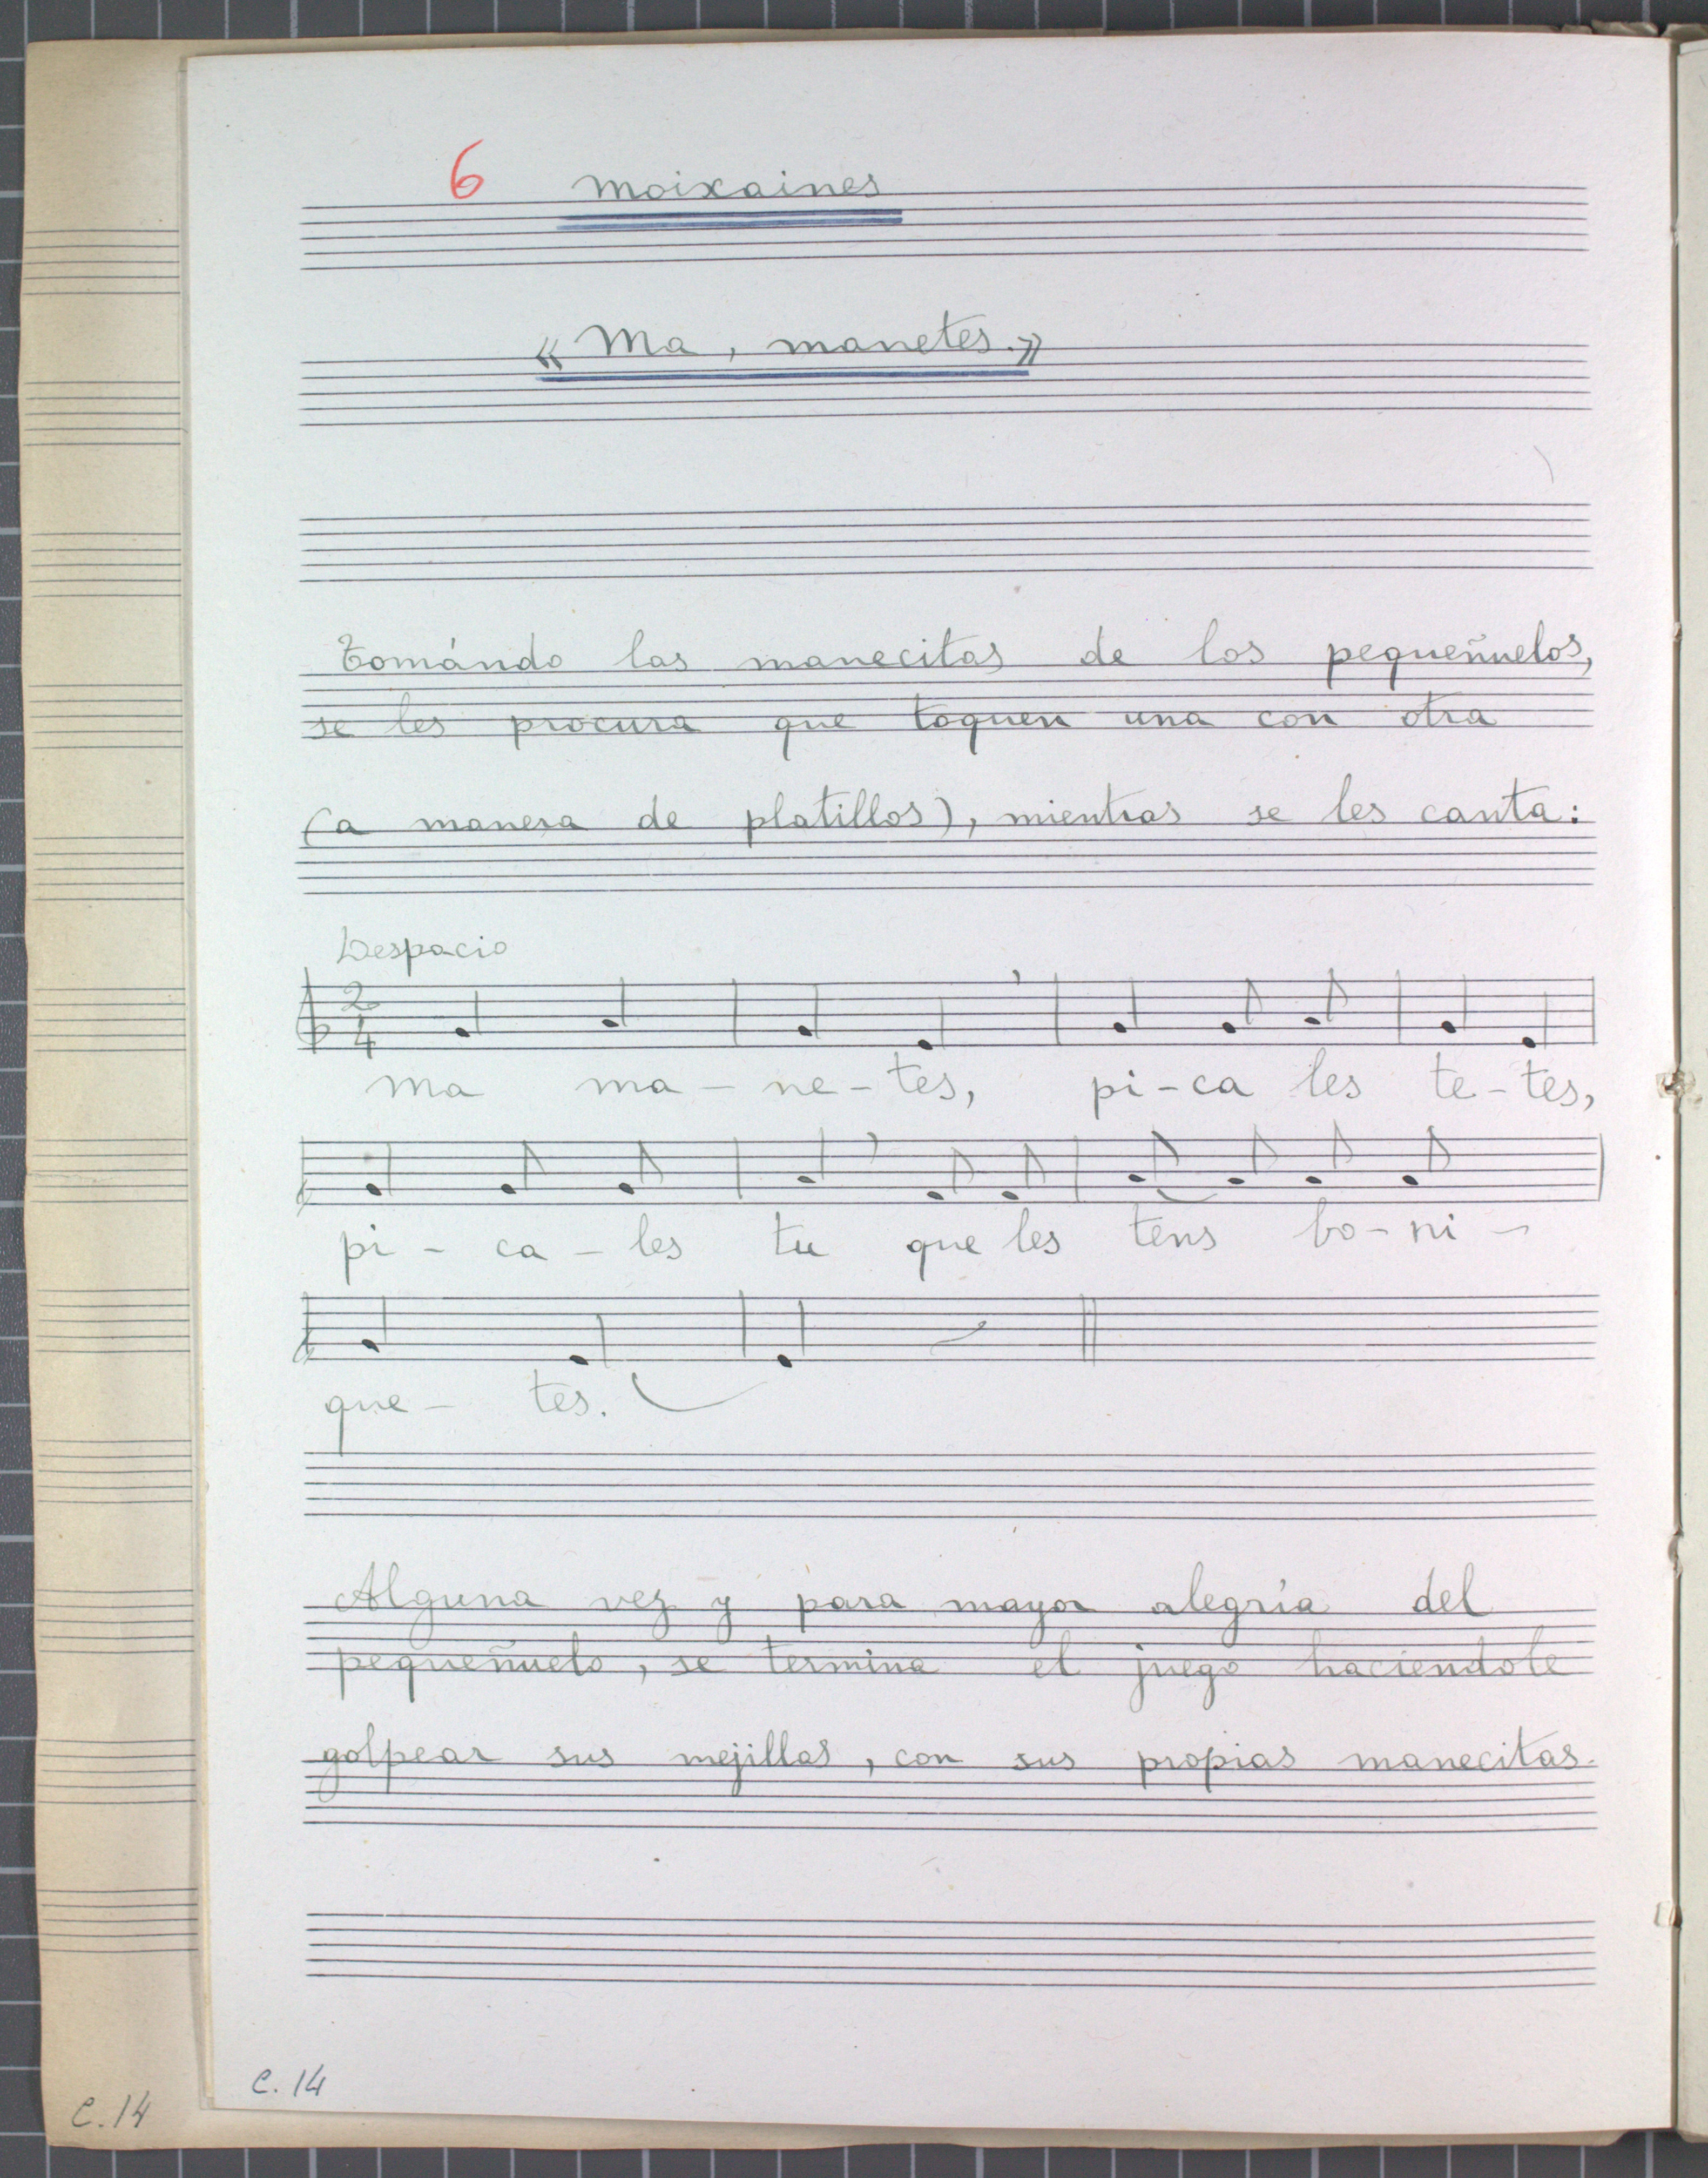 6 Moixaines
« Ma, manetes.»
Tomándo las manecitas de los pequeñuelos,
se les procura que toquen una con otra
(a manera de platillos), mientras se les canta:
Despacio
2
4
Ma ma - ne - tes, pi - ca les te - tes,
pi - ca - les tu que les tens bo - ni -
que - tes.
Alguna vez y para mayor alegría del
pequeñuelo, se termina el juego haciendole
golpear sus mejillas, con sus propias manecitas.
C. 14
C. 14